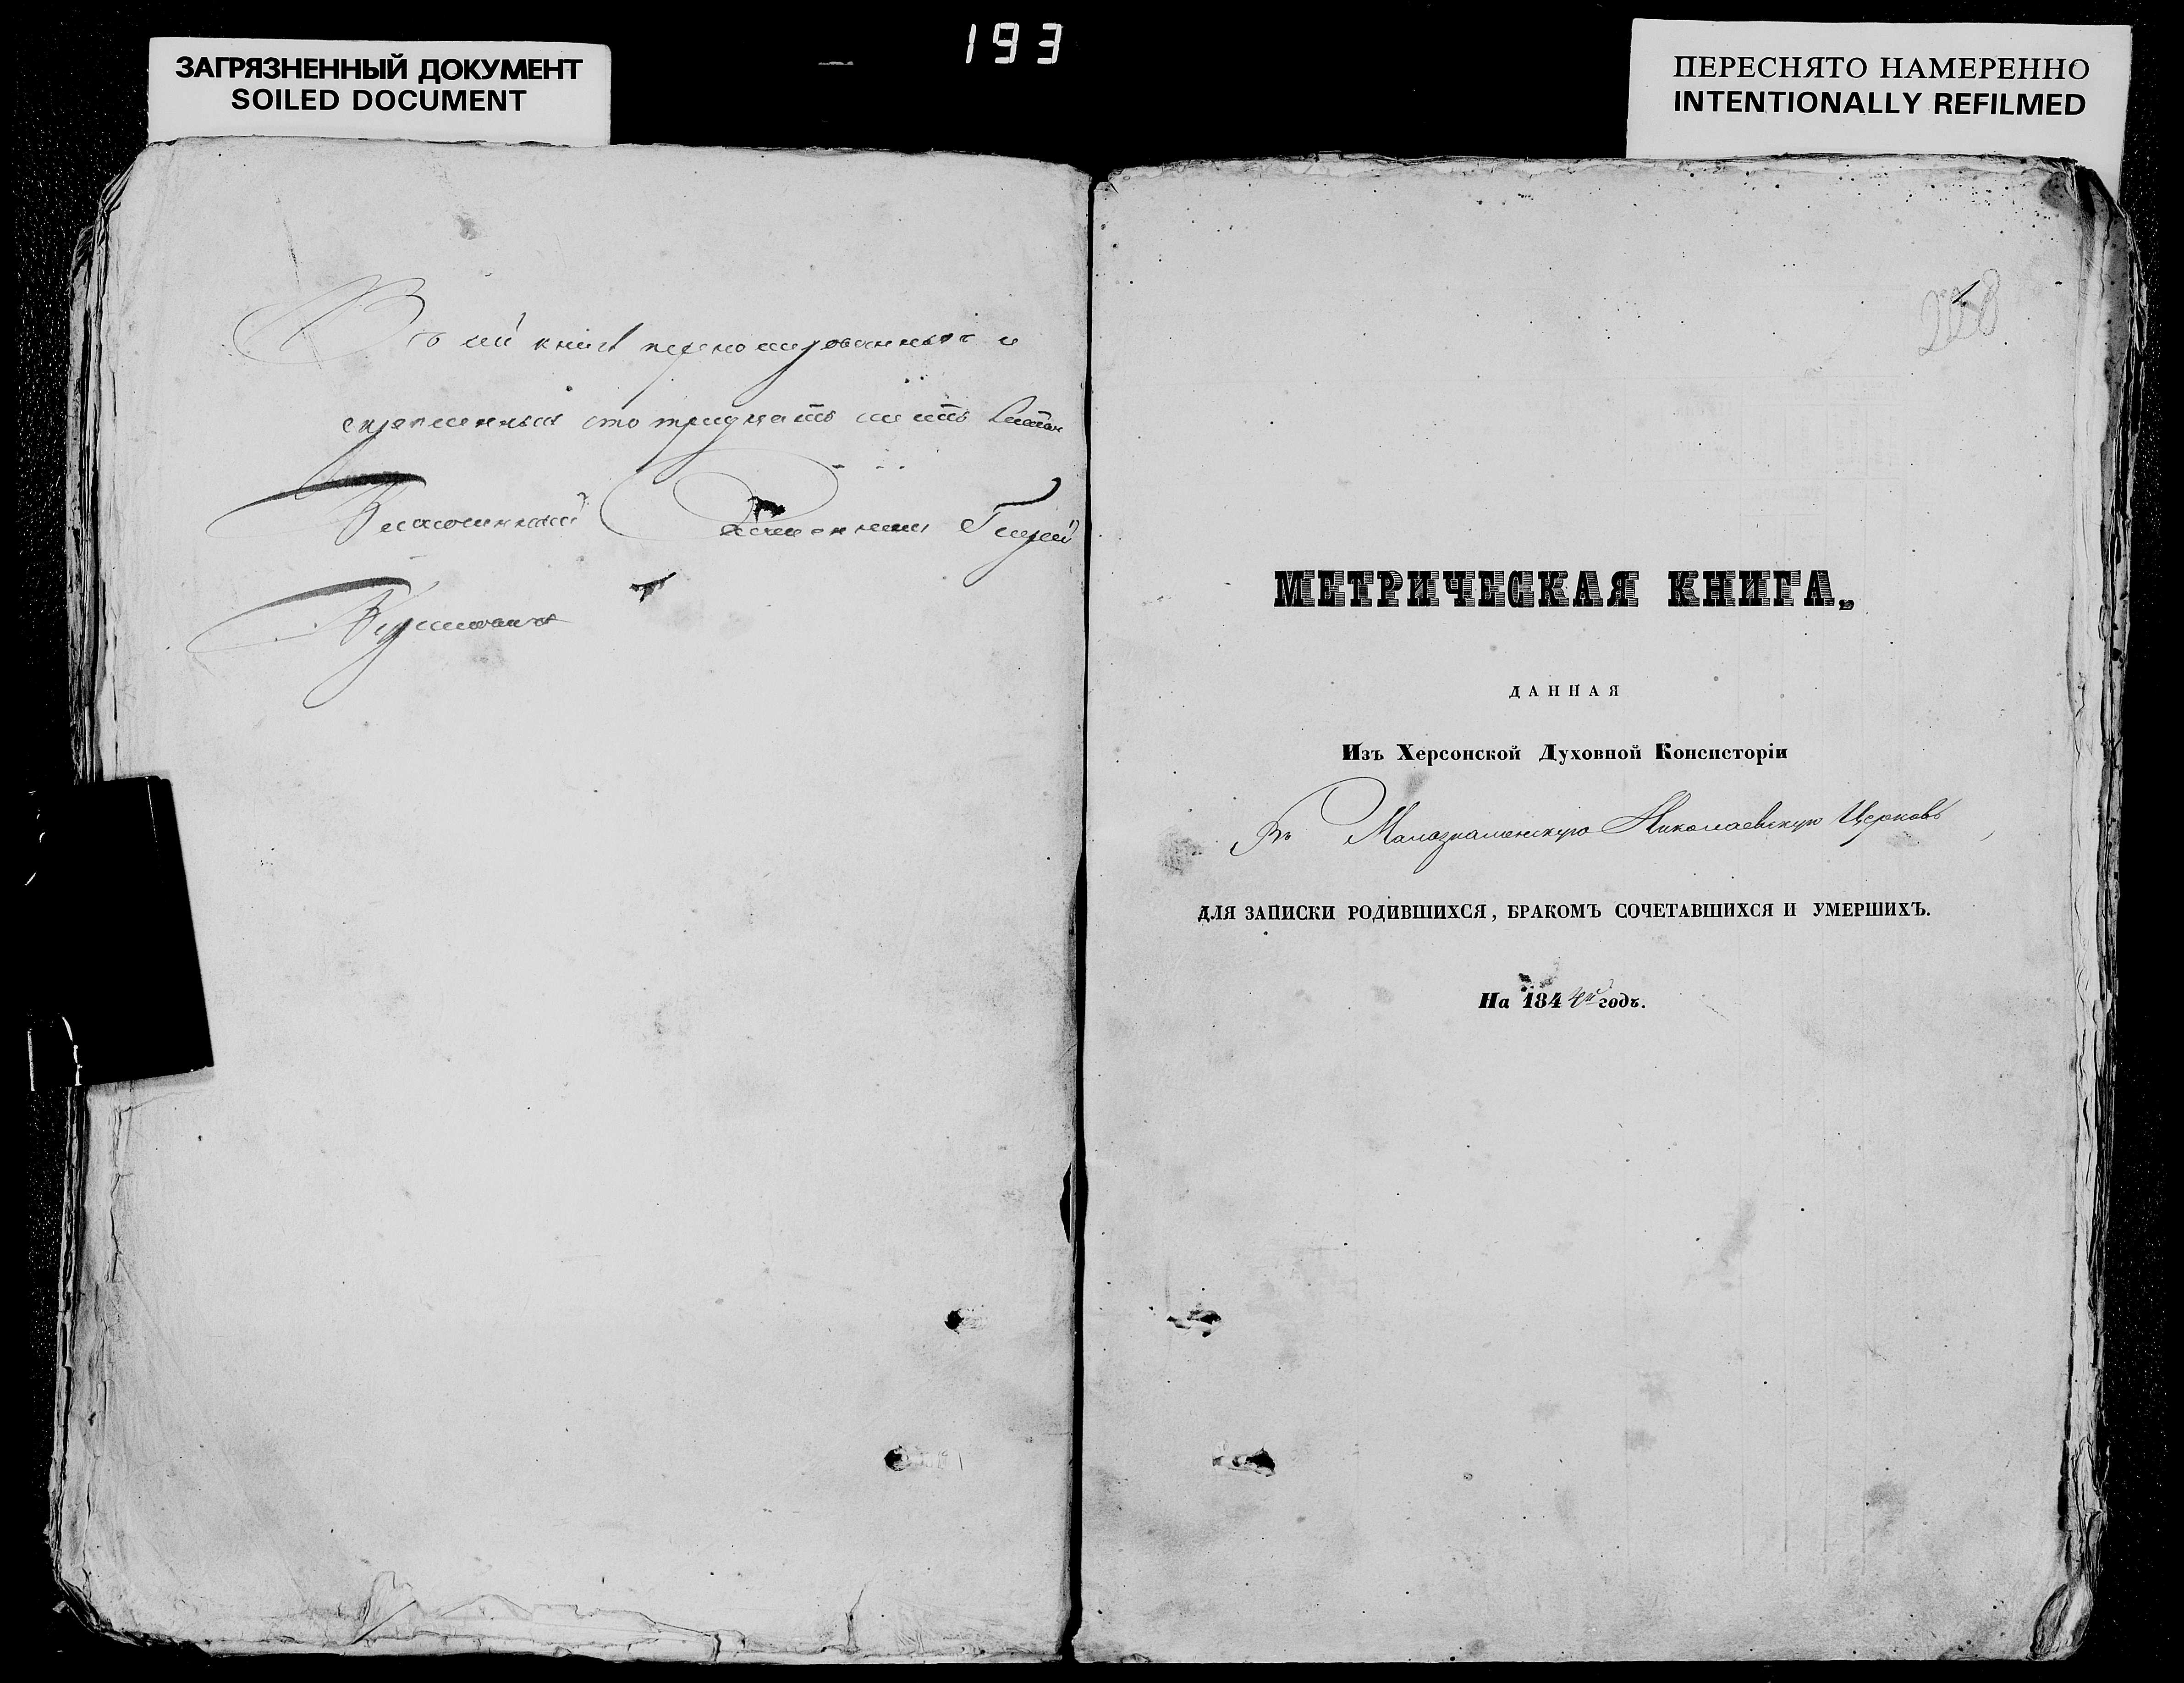 193
ЗАГРЯЗНЕННЫЙ ДОКУМЕНТ
SOILED DOCUMENT
ПЕРЕСНЯТО НАМЕРЕННО
INTENTIONALLY REFILMED
Въ сей книгѣ перномерованныхъ и
скрепленныхъ сто тридцать
Благочинный Іерей
МЕТРИЧЕСКАЯ КНИГА,
ДАННАЯ
Изъ Херсонской Духовной Консисторіи
Въ Малознаменскую Николаевскую Церковь
ДЛЯ ЗАПИСКИ РОДИВШИХСЯ, БРАКОМЪ СОЧЕТАВШИХСЯ И УМЕРШИХЪ.
На 1844й годъ.